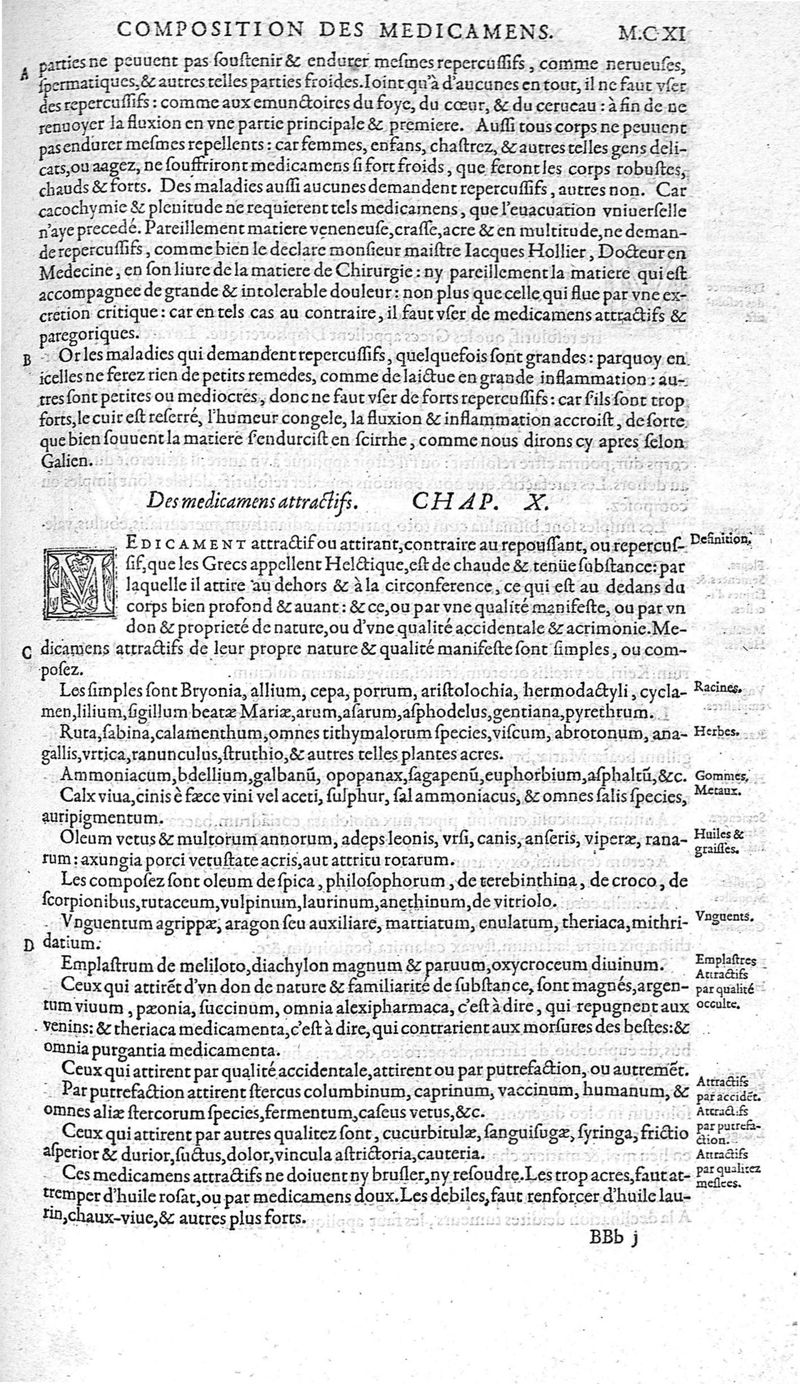 COMPOSITION DES MEDICAMENS. M.CXI
A parties ne peuuent pas souſtenir & endurer meſmes repercuſſifs, comme nerueuſes,
ſpermatiques, & autres telles parties froides. Ioint qu'à d'aucunes en tout, il ne faut vſer
des repercuſſifs : comme aux emunctoires du foye, du cœur, & du cerueau : à fin de ne
renuoyer la fluxion en vne partie principale & premiere. Auſſi tous corps ne peuuent
pas endurer meſmes repellents : car femmes, enfans, chaſtrez, & autres telles gens deli-
cats, ou aagez, ne ſouffriront medicamens ſi fort froids, que feront les corps robuſtes,
chauds & forts. Des maladies auſſi aucunes demandent repercuſſifs, autres non. Car
cacochymie & plenitude ne requierent tels medicamens, que l'euacuation vniuerſelle
n'aye precedé. Pareillement matiere veneneuſe, craſſe, acre & en multitude, ne deman-
de repercuſſifs, comme bien le declare monſieur maiſtre Iacques Hollier, Docteur en
Medecine, en ſon liure de la matiere de Chirurgie : ny pareillement la matiere qui eſt
accompagnee de grande & intolerable douleur : non plus que celle qui flue par vne ex-
cretion critique : car en tels cas au contraire, il faut vſer de medicamens attractifs &
paregoriques.
B Or les maladies qui demandent repercuſſifs, quelquefois ſont grandes : parquoy en
icelles ne ferez rien de petits remedes, comme de laictue en grande inflammation : au-
tres ſont petites ou mediocres, donc ne faut vſer de forts repercuſſifs : car ſ'ils ſont trop
forts, le cuir eſt reſerré, l'humeur congele, la fluxion & inflammation accroiſt, de ſorte
que bien ſouuent la matiere ſ'endurciſt en ſcirrhe, comme nous dirons cy apres ſelon
Galien.
Des medicamens attractifs. CHAP. X.
MEDICAMENT attractif ou attirant, contraire au repouſſant, ou repercuſ- Definition.
ſif, que les Grecs appellent Helctique, eſt de chaude & tenüe ſubſtance : par
laquelle il attire au dehors & à la circonference, ce qui eſt au dedans du
corps bien profond & auant : & ce, ou par vne qualité manifeſte, ou par vn
don & proprieté de nature, ou d'vne qualité accidentale & acrimonie. Me-
C dicamens attractifs de leur propre nature & qualité manifeſte ſont ſimples, ou com-
poſez.
Les ſimples ſont Bryonia, allium, cepa, porrum, ariſtolochia, hermodactyli, cycla- Racines.
men, lilium, ſigillum beatæ Mariæ, arum, aſarum, aſphodelus, gentiana, pyrethrum.
Ruta, ſabina, calamenthum, omnes tithymalorum ſpecies, viſcum, abrotonum, ana- Herbes.
gallis, vrtica, ranunculus, ſtruthio, & autres telles plantes acres.
Ammoniacum, bdellium, galbanū, opopanax, ſagapenū, euphorbium, aſphaltū, &c. Gommes.
Calx viua, cinis è fæce vini vel aceti, ſulphur, ſal ammoniacus, & omnes ſalis ſpecies, Metaux.
auripigmentum.
Oleum vetus & multorum annorum, adeps leonis, vrſi, canis, anſeris, viperæ, rana- Huiles &
rum : axungia porci vetuſtate acris, aut attritu rotarum. graiſſes.
Les compoſez ſont oleum de ſpica, philoſophorum, de terebinthina, de croco, de
ſcorpionibus, rutaceum, vulpinum, laurinum, anethinum, de vitriolo.
Vnguentum agrippæ, aragon ſeu auxiliare, martiatum, enulatum, theriaca, mithri- Vnguents.
D datium.
Emplaſtrum de meliloto, diachylon magnum & paruum, oxycroceum diuinum. Emplaſtres
Ceux qui attirēt d'vn don de nature & familiarité de ſubſtance, ſont magnés, argen- Attractifs par qualité
tum viuum, pæonia, ſuccinum, omnia alexipharmaca, c'eſt à dire, qui repugnent aux occulte.
venins : & theriaca medicamenta, c'eſt à dire, qui contrarient aux morſures des beſtes : &
omnia purgantia medicamenta.
Ceux qui attirent par qualité accidentale, attirent ou par putrefaction, ou autremēt. Attractifs
Par putrefaction attirent ſtercus columbinum, caprinum, vaccinum, humanum, & par accidēt.
omnes aliæ ſtercorum ſpecies, fermentum, caſeus vetus, &c. Attractifs
Ceux qui attirent par autres qualitez ſont, cucurbitulæ, ſanguiſugæ, ſyringa, frictio par putrefa-
ction.
aſperior & durior, ſuctus, dolor, vincula aſtrictoria, cauteria. Attractifs
Ces medicamens attractifs ne doiuent ny bruſler, ny reſoudre. Les trop acres, faut at- par qualitez
meſlees.
tremper d'huile roſat, ou par medicamens doux. Les debiles, faut renforcer d'huile lau-
rin, chaux-viue, & autres plus forts.
BBb j